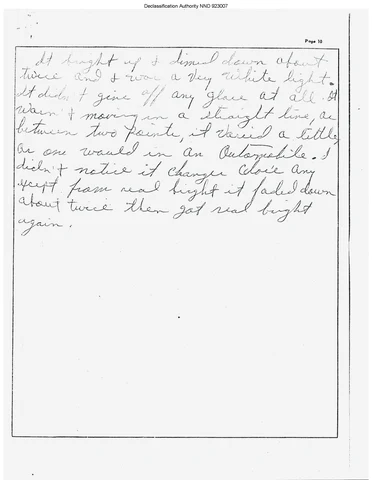 Declassification Authority NND 923007
Page 12
It bright up & dimed down about
twice and & was a very white light.
It didn't give off any glare at all. It
wasn't moving in a straight line, as
between two points, it varied a little,
as one would in an Automobile. I
didn't notice it change color any
xcept from real bright it faded down
about twice then got real bright
again.